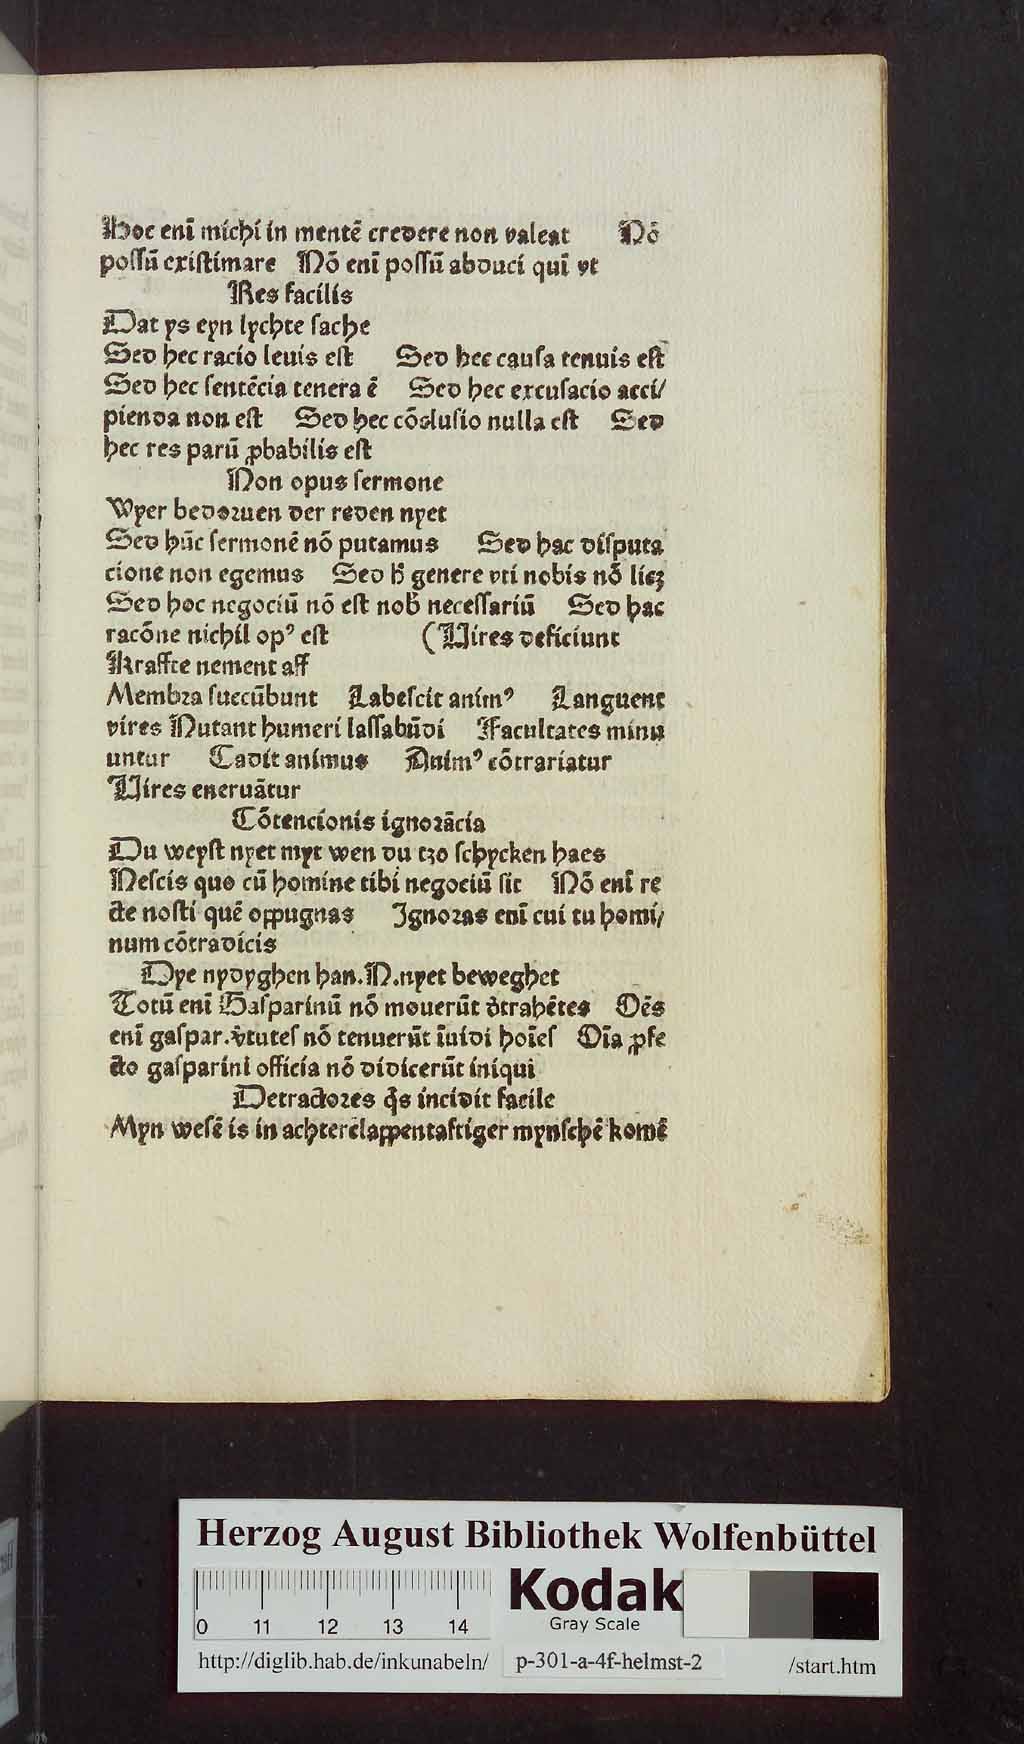 Hoc enī michi in mentē credere non valeat Nō
possū existimare Nō enī possū abduci quī vt
Res facilis
Dat ys eyn lychte sache
Sed hec racio leuis est Sed hec causa tenuis est
Sed hec sentēcia tenera ē Sed hec excusacio acci/
pienda non est Sed hec cōclusio nulla est Sed
hec res parū ꝓbabilis est
Non opus sermone
Wyer bedoruen der reden nyet
Sed hūc sermonē nō putamus Sed hac disputa
cione non egemus Sed h̄ genere vti nobis nō licꝫ
Sed hoc negociū nō est nob̄ necessariū Sed hac
racōne nichil opꝰ est (Vires deficiunt
Kraffte nement aff
Membra succūbunt Labescit animꝰ Languent
vires Nutant humeri lassabūdi Facultates minu
untur Cadit animus Animꝰ cōtrariatur
Vires eneruātur
Cōtencionis ignorācia
Du weyst nyet myt wen du tzo schycken haes
Nescis quo cū homine tibi negociū sit Nō enī re
cte nosti quē oppugnas Ignoras enī cui tu homi/
num cōtradicis
Dye nydyghen han.N.nyet beweghet
Totū enī Gasparinū nō mouerūt dṫrahētes Oēs
enī gaspar.v̇tutes nō tenuerūt īuidi hoīes Oīa ꝓfe
cto gasparini officia nō didicerūt iniqui
Detractores q̄s incidit facile
Myn wesē is in achterclappentaftiger mynschē komē
Herzog August Bibliothek Wolfenbüttel
0 11 12 13 14
Kodak
Gray Scale
http://diglib.hab.de/inkunabeln/ p-301-a-4f-helmst-2 /start.htm